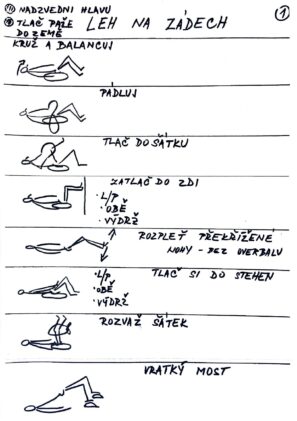 ⑪ NADZVEDNI HLAVU
⑩ TLAČ PAŽE DO ZEMĚ
LEH NA ZÁDECH
①
KRUŽ A BALANCUJ
PÁDLUJ
TLAČ DO ŠÁTKU
ZATLAČ DO ZDI
· L/P
· OBĚ
· VÝDRŽ
ROZPLEŤ PŘEKŘÍŽENÉ
NOHY - BEZ OVERBALU
TLAČ SI DO STEHEN
· L/P
· OBĚ
· VÝDRŽ
ROZVAŽ ŠÁTEK
VRATKÝ MOST